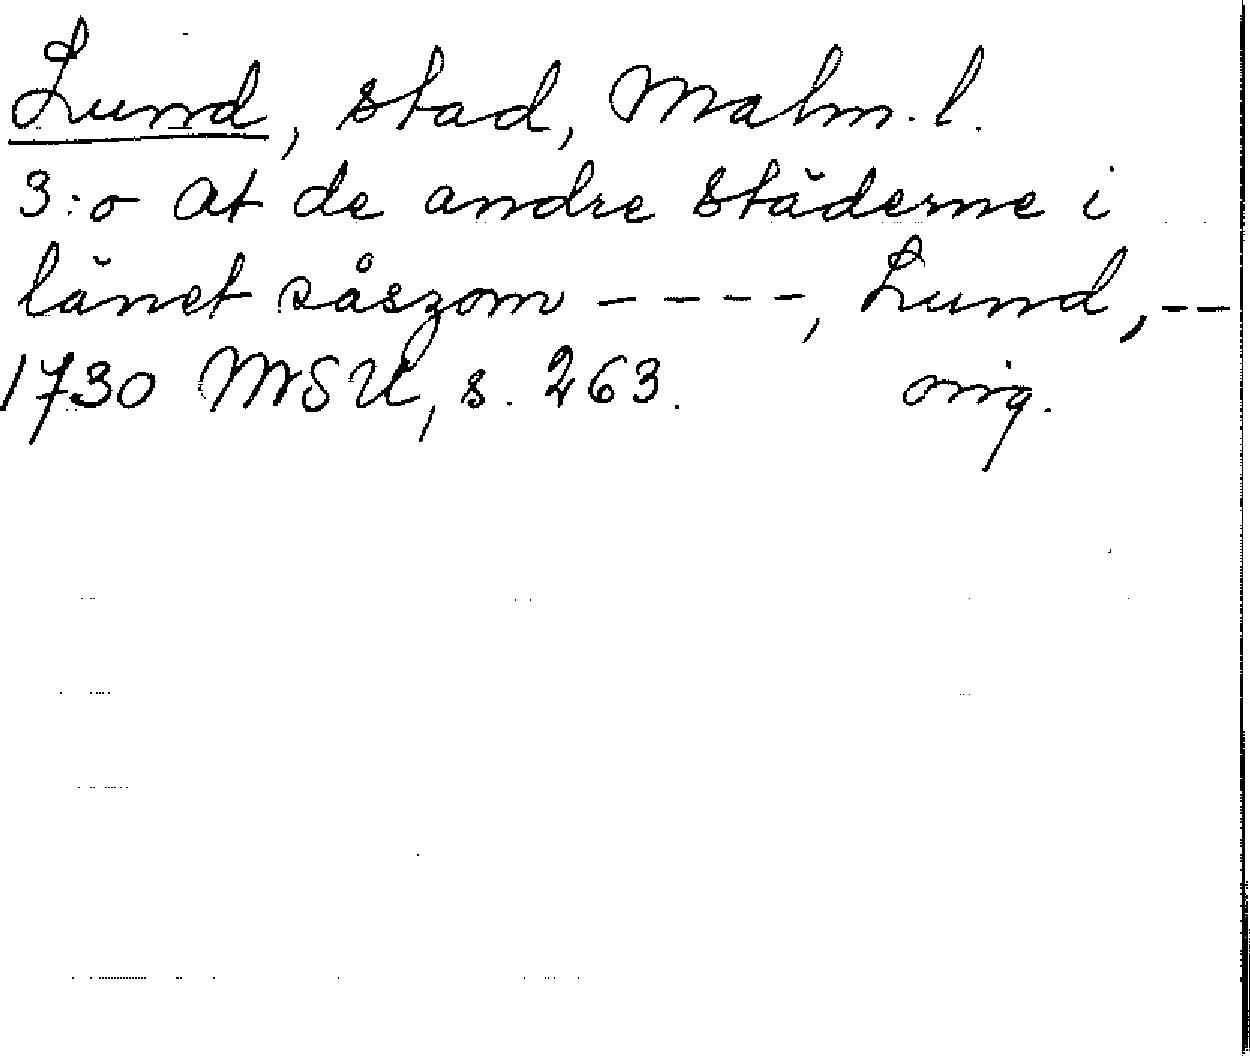 Lund, stad, Malm. l.
3:o at de andre städerne i
länet såszom - - - -, Lund, - -
1730 MSU, s. 263. orig.